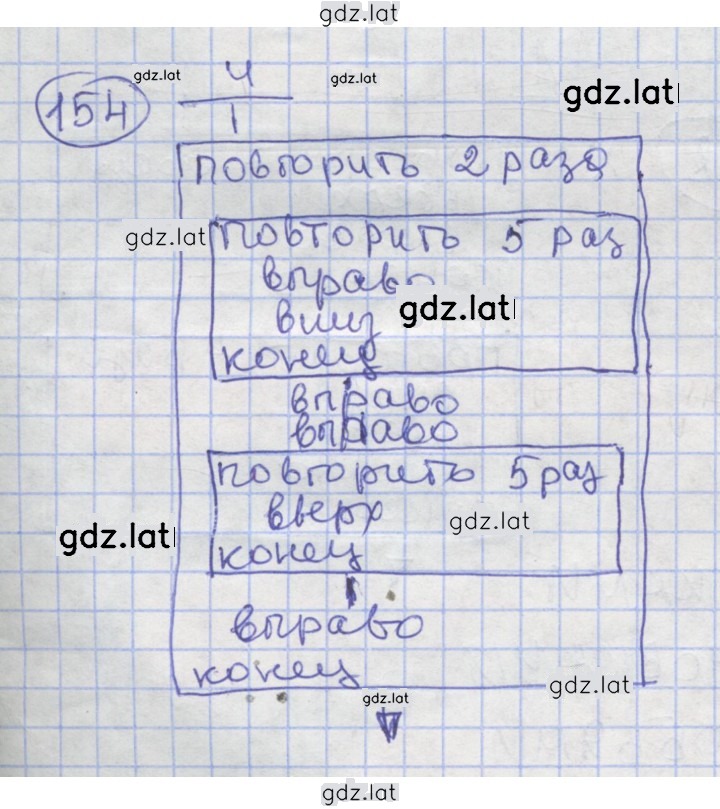 gdz.lat
154
gdz.lat
Ч
gdz.lat
gdz.lat
1
повторить 2 раза
gdz.lat
повторить 5 раз
вправо
gdz.lat
вниз
конец
вправо
вправо
повторить 5 раз
вверх
gdz.lat
gdz.lat
конец
вправо
конец
gdz.lat
gdz.lat
gdz.lat